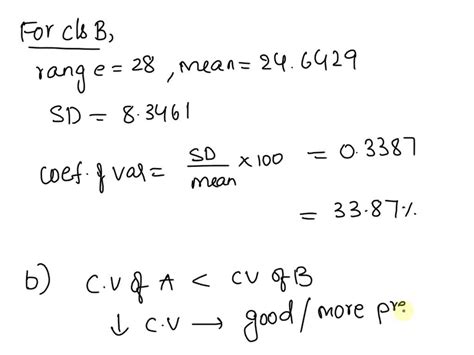 For cls B,
range = 28 , mean = 24.6429
SD = 8.3461
coef. of var = SD/mean × 100 = 0.3387
= 33.87%
b) C.V of A < CV of B
↓ C.V → good / more pre